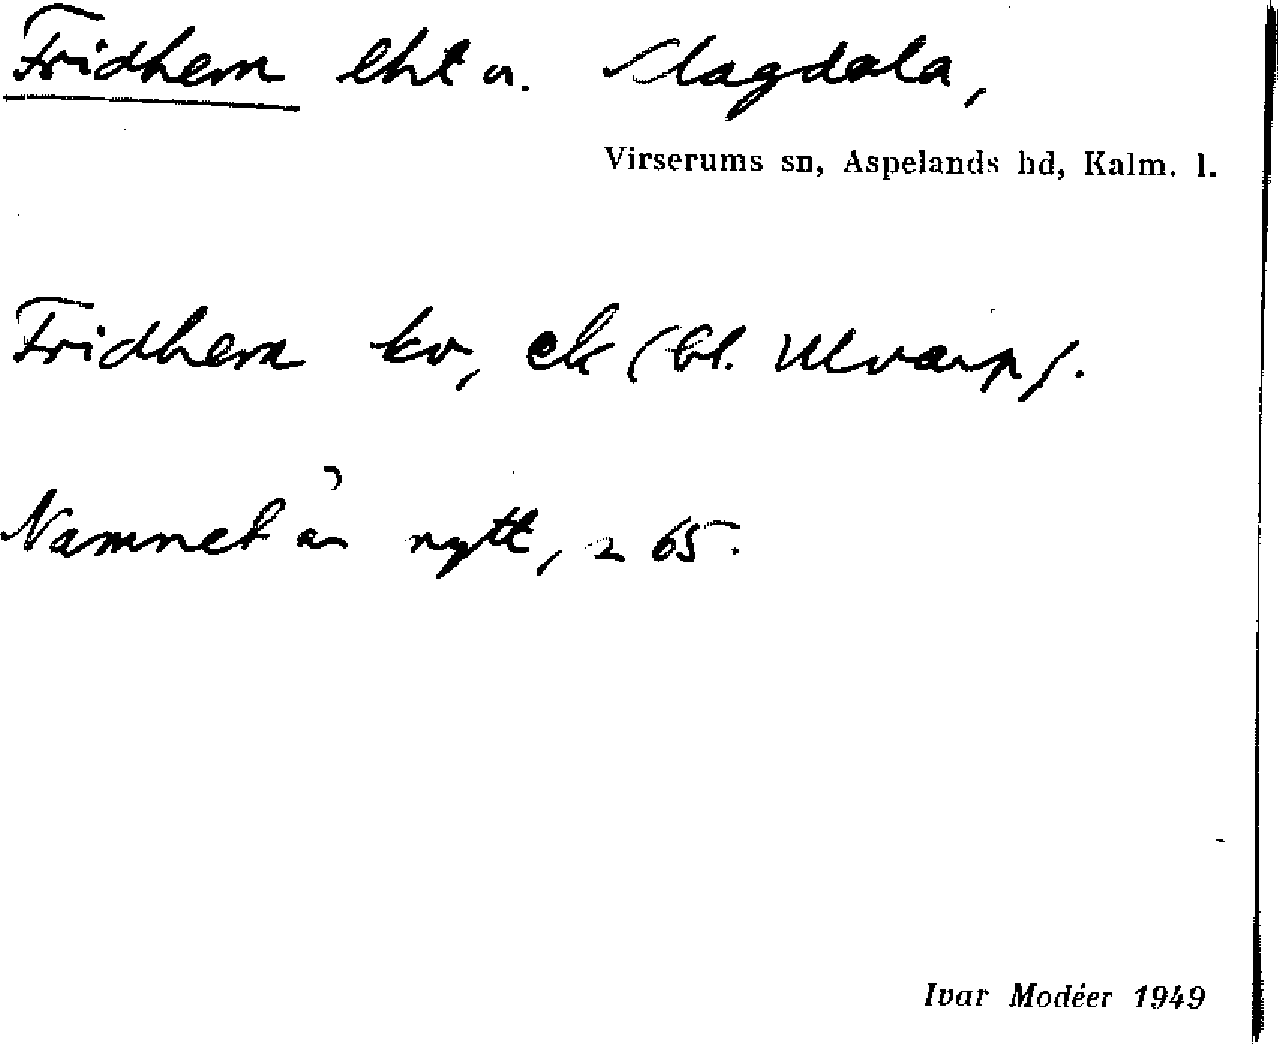 Fridhem lht u. Magdala,
Virserums sn, Aspelands hd, Kalm. l.
Fridhem kv, ek (bl. Ulvarp).
Namnet är nytt, 2 65.
Ivar Modéer 1949